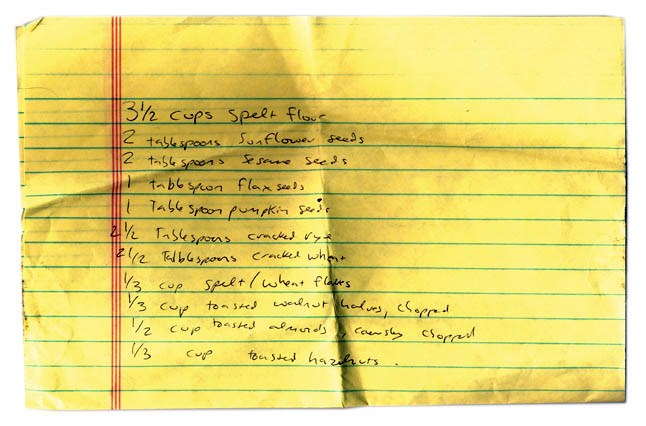 3 1/2 cups spelt flour
2 tablespoons sunflower seeds
2 tablespoons sesame seeds
1 tablespoon flax seeds
1 Tablespoon pumpkin seeds
2 1/2 Tablespoons cracked rye
2 1/2 Tablespoons cracked wheat
1/3 cup spelt/wheat flakes
1/3 cup toasted walnut halves, chopped
1/2 cup toasted almonds, chopped
1/3 cup toasted hazelnuts.